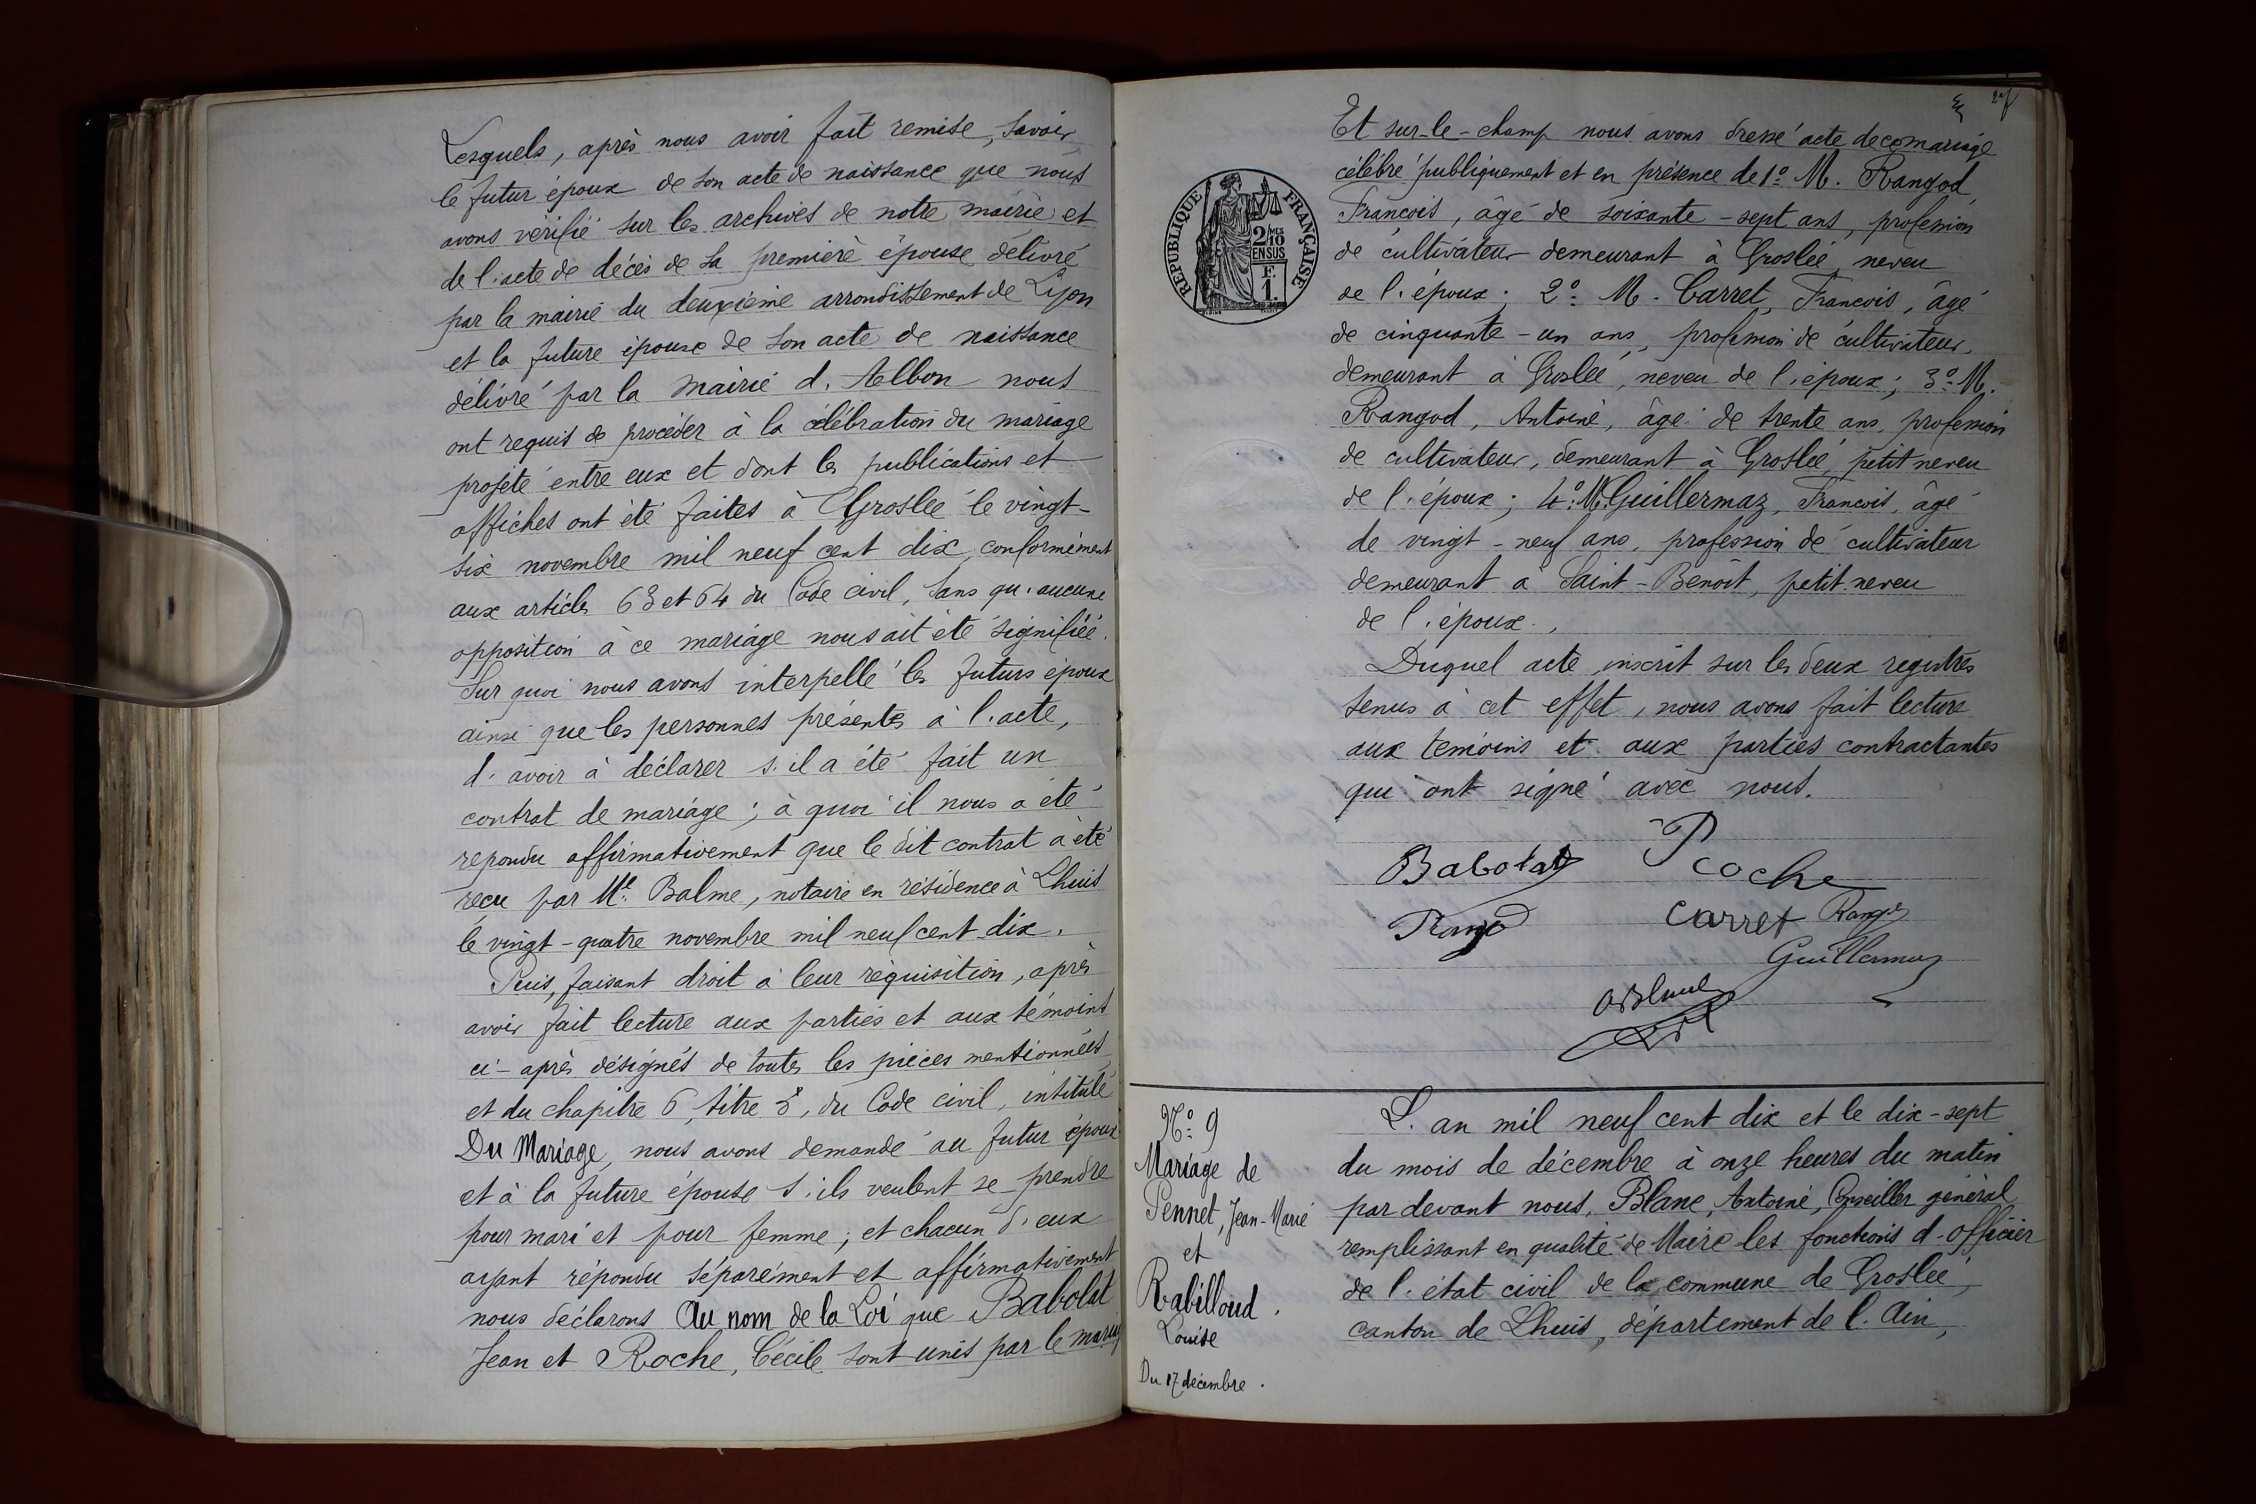 Lesquels, après nous avoir fait remise, savoir
le futur époux de son acte de naissance que nous
avons vérifié sur les archives de notre mairie et
de l'acte de décès de sa première épouse délivré
par la mairie du deuxième arrondissement de Lyon
et la future épouse de son acte de naissance
délivré par la mairie d'Albon nous
ont requis de procéder à la célébration du mariage
projeté entre eux et dont les publications et
affiches ont été faites à Groslée le vingt-
six novembre mil neuf cent dix, conformément
aux articles 63 et 64 du Code civil, sans qu'aucune
opposition à ce mariage nous ait été signifiée.
Sur quoi nous avons interpellé les futurs époux
ainsi que les personnes présentes à l'acte,
d'avoir à déclarer s'il a été fait un
contrat de mariage ; à quoi il nous a été
repondu affirmativement que le dit contrat a été
reçu par Me Balme, notaire en résidence à Lhuis
le vingt-quatre novembre mil neuf cent dix.
Puis, faisant droit à leur réquisition, après
avoir fait lecture aux parties et aux témoins
ci-après désignés de toutes les pièces mentionnées
et du chapitre 6, titre 5, du Code civil, intitulé
Du Mariage, nous avons demandé au futur époux
et à la future épouse s'ils veulent se prendre
pour mari et pour femme ; et chacun d'eux
ayant répondu séparément et affirmativement
nous déclarons Au nom de la Loi que Babolat
Jean et Roche, Cécile sont unis par le mariage
Et sur-le-champ nous avons dressé acte de ce mariage
célébré publiquement et en présence de 1º M. Rangod
François, âgé de soixante-sept ans, profession
de cultivateur demeurant à Groslée neveu
de l'époux ; 2º M. Carret, François, âgé
de cinquante-un ans, profession de cultivateur,
demeurant à Groslée, neveu de l'époux ; 3º M.
Rangod, Antoine, âgé de trente ans, profession
de cultivateur, demeurant à Groslée, petit neveu
de l'époux ; 4º M. Guillermaz, François, âgé
de vingt-neuf ans, profession de cultivateur
demeurant à Saint-Benoit, petit neveu
de l'époux.,
Duquel acte inscrit sur les deux registres
tenus à cet effet, nous avons fait lecture
aux temoins et aux parties contractantes
qui ont signé avec nous.
RÉPUBLIQUE FRANÇAISE
2/10 MES
EN SUS
F.
1.
Babolat Roche
Rangod Carret Rangod
Guillermaz
A Blanc
Nº 9
Mariage de
Pennet, Jean-Marie
et
Rabilloud.
Louise
Du 17 décembre.
L'an mil neuf cent dix et le dix-sept
du mois de décembre à onze heures du matin
par devant nous, Blanc, Antoine, Conseiller général
remplissant en qualité de Maire les fonctions d'officier
de l'état civil de la commune de Groslée,
canton de Lhuis, département de l'Ain,